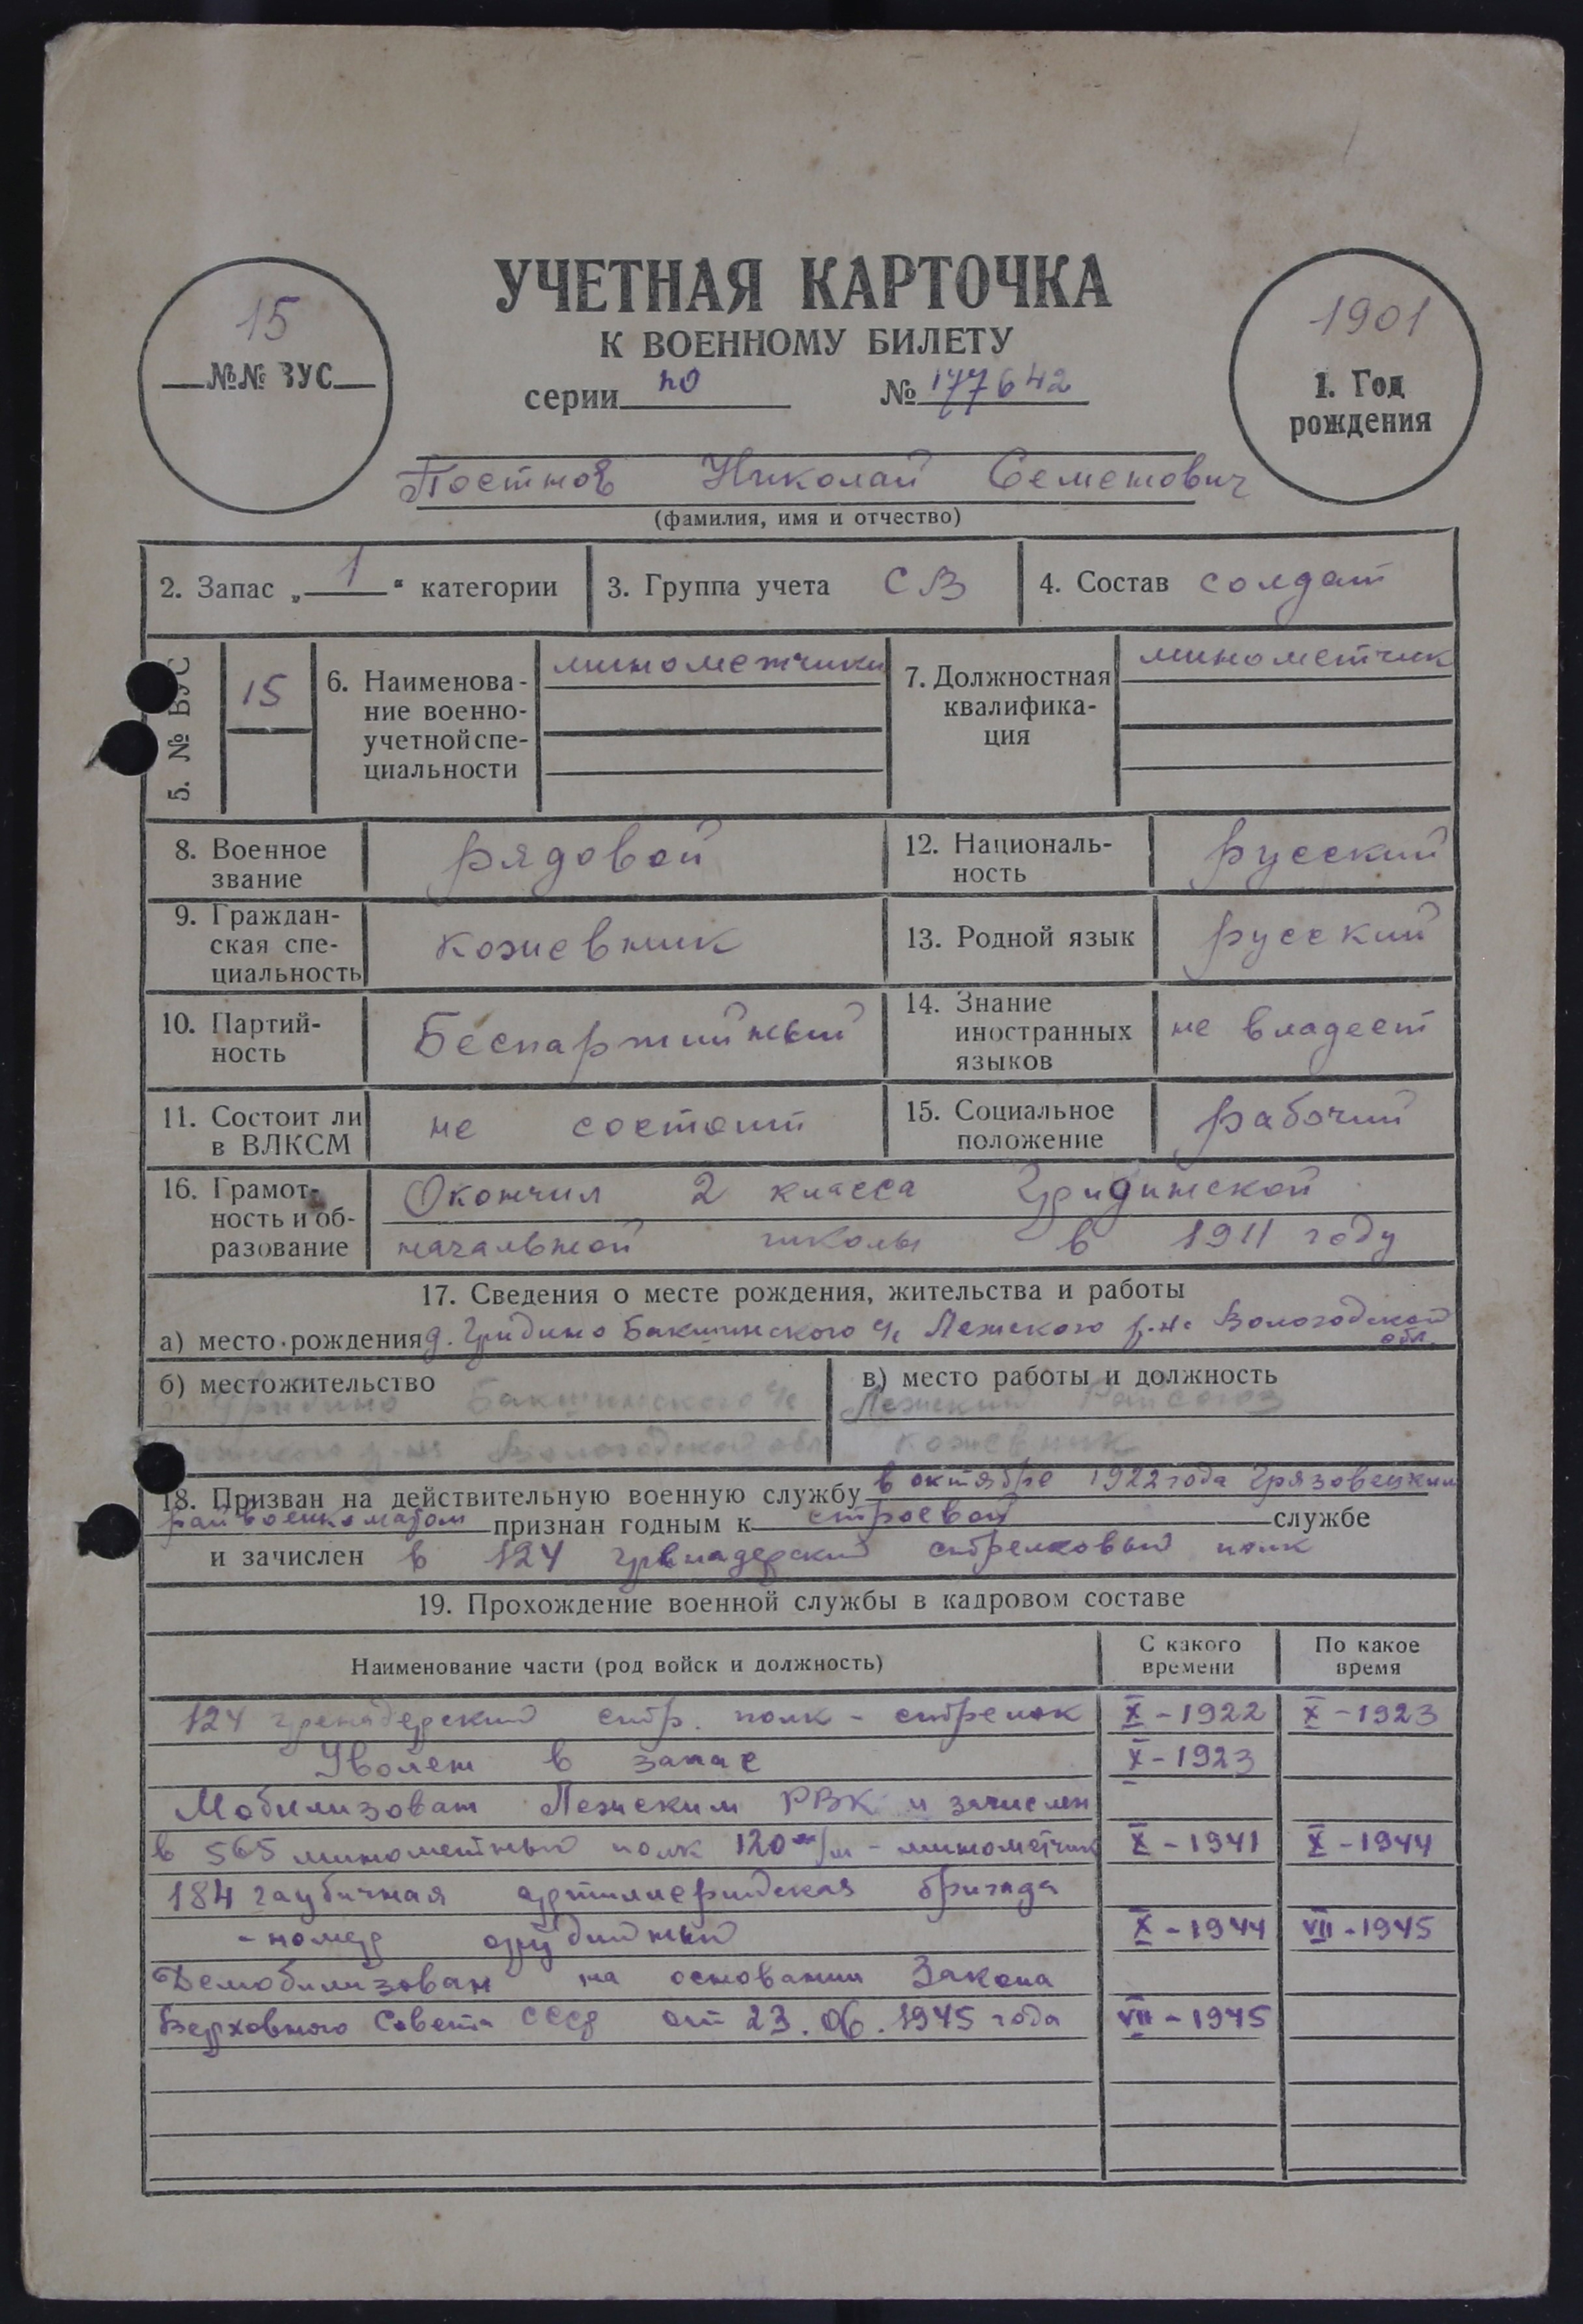 УЧЕТНАЯ КАРТОЧКА
К ВОЕННОМУ БИЛЕТУ
серии по № 177642
15
№№ ВУС
1901
1. Год
рождения
Постнов Николай Семенович
(фамилия, имя и отчество)
2. Запас „1“ категории
3. Группа учета СВ
4. Состав солдат
5. № ВУС
15
6. Наименова-
ние военно-
учетной спе-
циальности
минометчики
7. Должностная
квалифика-
ция
минометчик
8. Военное
звание
рядовой
12. Националь-
ность
русский
9. Граждан-
ская спе-
циальность
кожевник
13. Родной язык
русский
10. Партий-
ность
Беспартийный
14. Знание
иностранных
языков
не владеет
11. Состоит ли
в ВЛКСМ
не состоит
15. Социальное
положение
рабочий
16. Грамот-
ность и об-
разование
Окончил 2 класса Гридинской
начальной школы в 1911 году
17. Сведения о месте рождения, жительства и работы
а) место рождения д. Гридино Бакшинского с/с Лежского р-на Вологодской
обл.
б) местожительство
Гридино Бакшинского с/с
Лежского р-на Вологодской обл
в) место работы и должность
Лежский Райсоюз
кожевник
18. Призван на действительную военную службу в октябре 1922 года Грязовецким
райвоенкоматом признан годным к строевой службе
и зачислен в 124 гренадерский стрелковый полк
19. Прохождение военной службы в кадровом составе
Наименование части (род войск и должность)
С какого
времени
По какое
время
124 гренадерский стр. полк - стрелок X - 1922 X - 1923
Уволен в запас X - 1923
Мобилизован Лежским РВК и зачислен
в 565 минометный полк 120 м/м - минометчик X - 1941 X - 1944
184 гаубичная артиллерийская бригада
- номер орудийный X - 1944 VII - 1945
Демобилизован на основании Закона
Верховного Совета СССР от 23.06.1945 года VII - 1945